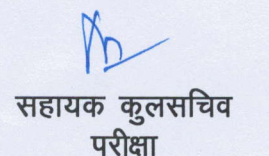 सहायक कुलसचिव
परीक्षा